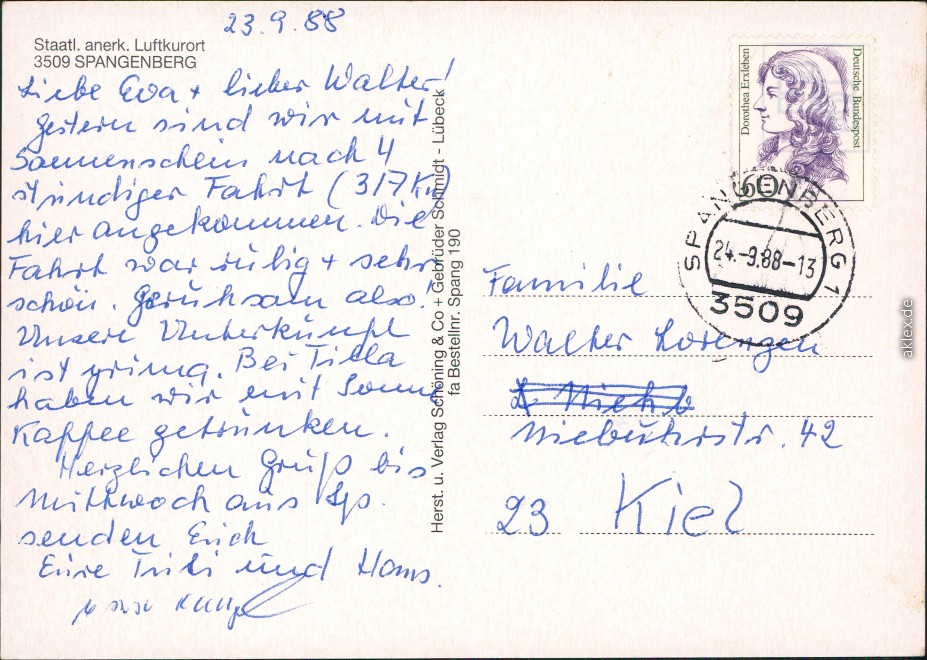 23.9.88
Staatl. anerk. Luftkurort
3509 SPANGENBERG
Liebe Eva + lieber Walter!
Gestern sind wir mit
Sonnenschein nach 4
stündiger Fahrt (317 Km)
hier angekommen. Die
Fahrt war ruhig + sehr
schön. Geruhsam also!
Unsere Unterkunft
ist prima. Bei Tilla
haben wir mit Sonne
Kaffee getrunken.
Herzlichen Gruß bis
Mittwoch aus Sp.
senden Euch
Eure und Hans.
Herst. u. Verlag Schöning & Co + Gebrüder Schmidt - Lübeck
fa Bestellnr. Spang 190
Dorothea Erxleben
Deutsche Bundespost
60
SPANGENBERG 1
24.-9.88-13
3509
Familie
Walter Lorenzen
Niebuhrstr. 42
23 Kiel
aklex.de